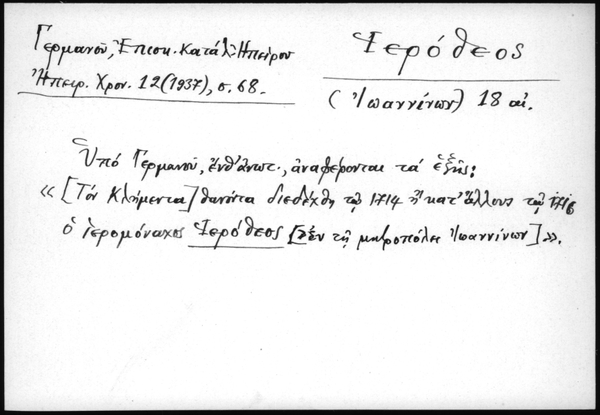 Γερμανοῦ, Ἐπισκ. Κατάλ. Ἠπείρου
Ἠπειρ. Χρον. 12 (1937), σ. 68.
Ἱερόθεος
(Ἰωαννίνων) 18 αἰ.
Ὑπό Γερμανοῦ, ἔνθ' ἀνωτ., ἀναφέρονται τά ἑξῆς:
« [Τόν Κλήμεντα] θανόντα διεδέχθη τῷ 1714 ἢ κατ' ἄλλους τῷ 1716
ὁ ἱερομόναχος Ἱερόθεος [ἐν τῇ μητροπόλει Ἰωαννίνων] ».